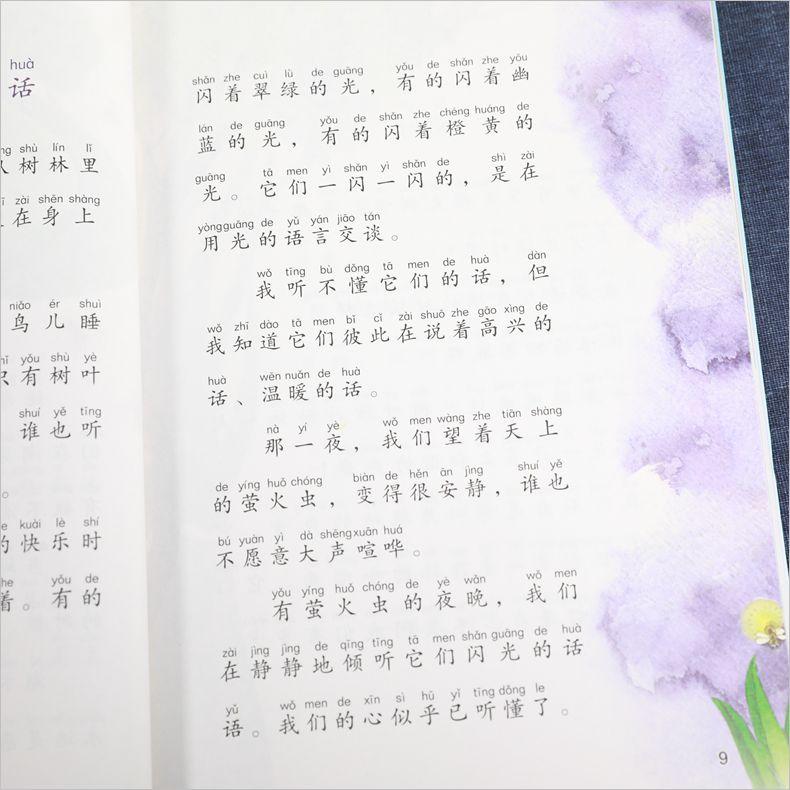 huà
话
shù lín lǐ
树林里
zài shēn shàng
在身上
niǎo ér shuì
鸟儿睡
yǒu shù yè
有树叶
shuí yě tīng
谁也听
。
kuài lè shí
的快乐时
yǒu de
着。有的
shǎn zhe cuì lǜ de guāng yǒu de shǎn zhe yōu
闪着翠绿的光，有的闪着幽
lán de guāng yǒu de shǎn zhe chéng huáng de
蓝的光，有的闪着橙黄的
guāng tā men yì shǎn yì shǎn de shì zài
光。它们一闪一闪的，是在
yòng guāng de yǔ yán jiāo tán
用光的语言交谈。
wǒ tīng bù dǒng tā men de huà dàn
我听不懂它们的话，但
wǒ zhī dào tā men bǐ cǐ zài shuō zhe gāo xìng de
我知道它们彼此在说着高兴的
huà wēn nuǎn de huà
话、温暖的话。
nà yí yè wǒ men wàng zhe tiān shàng
那一夜，我们望着天上
de yíng huǒ chóng biàn de hěn ān jìng shuí yě
的萤火虫，变得很安静，谁也
bú yuàn yì dà shēng xuān huá
不愿意大声喧哗。
yǒu yíng huǒ chóng de yè wǎn wǒ men
有萤火虫的夜晚，我们
zài jìng jìng de qīng tīng tā men shǎn guāng de huà
在静静地倾听它们闪光的话
yǔ wǒ men de xīn sì hū yǐ tīng dǒng le
语。我们的心似乎已听懂了。
9